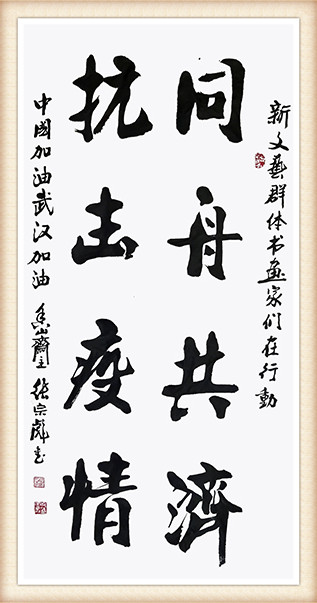 新文藝群体书画家们在行動
同舟共濟
抗击疫情
中國加油武汉加油 山齋主张宗彪书